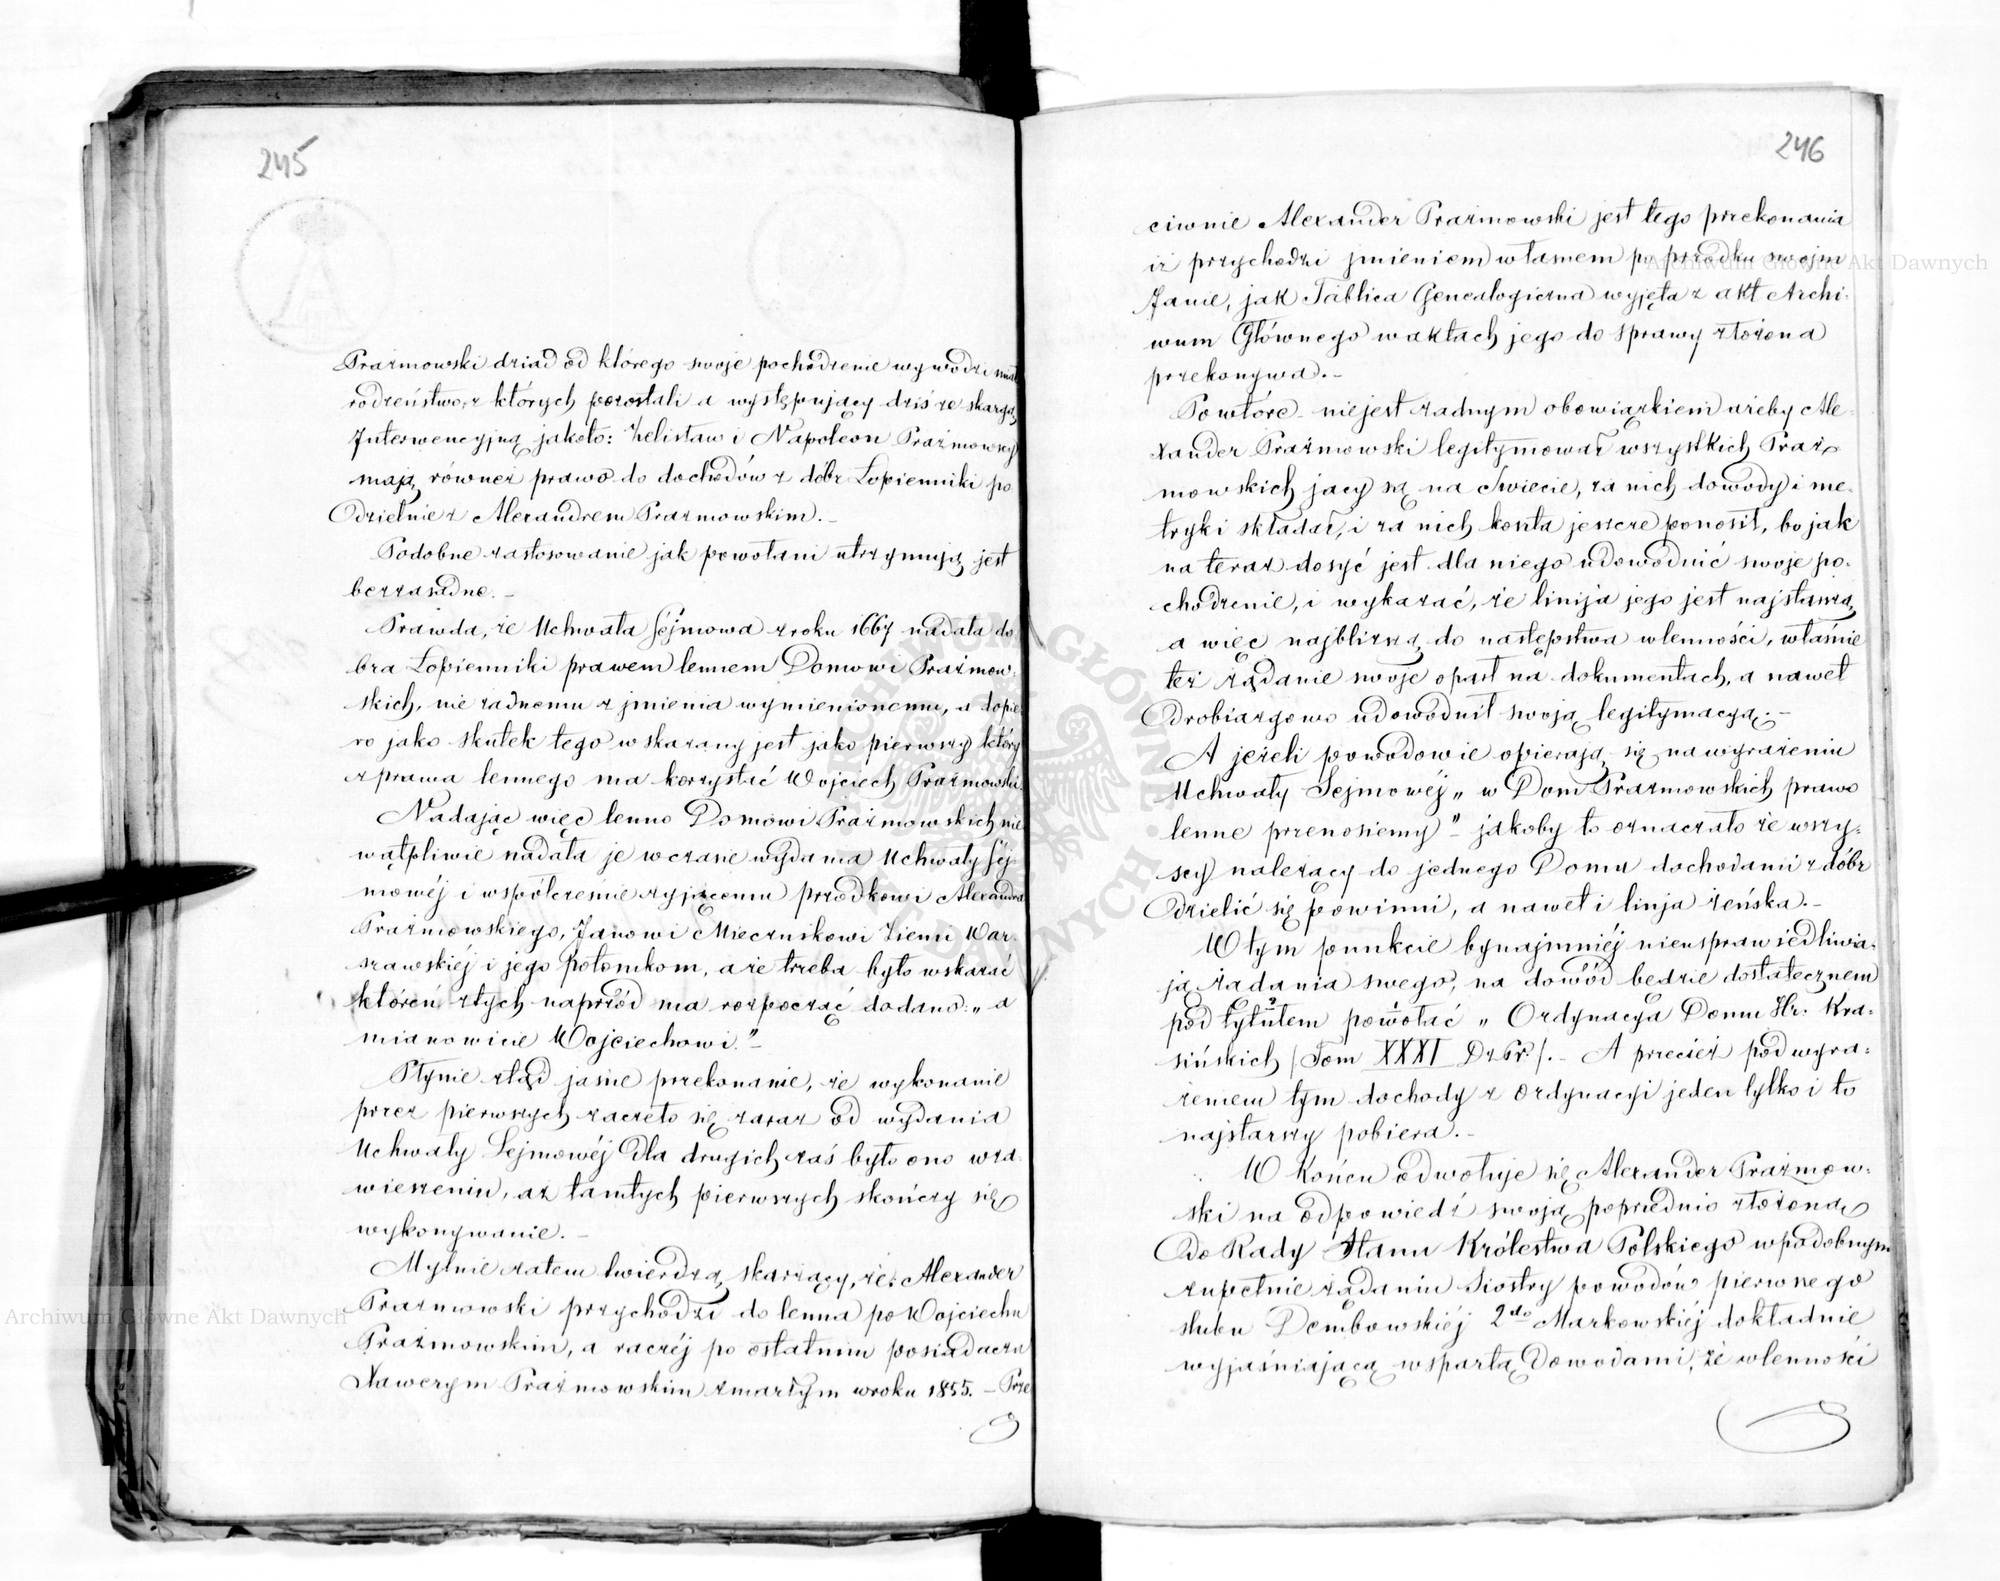 245
Prażmowski dziad od którego swoje pochodzenie wywodzi miał
rodzeństwo, z których pozostali a występujący dziś ze skargą
Interwencyjną jakoto: Zelisław i Napoleon Prażmowscy
mają również prawo do dochodów z dóbr Łopienniki po
dzielnie z Alexandrem Prażmowskim. –
Podobne zastosowanie jak powołani utrzymują jest
bezzasadne. –
Prawda, że Uchwała Séjmowa z roku 1667 nadała do
bra Łopienniki prawem lennem Domowi Prażmow-
skich, nie żadnemu z jmienia wymienionemu, a dopie
ro jako skutek tego wskazany jest jako pierwszy który
z prawa lennego ma korzystać Wojciech Prażmowski.
Nadając więc lenno Domowi Prażmowskich nie
wątpliwie nadała je w czasie wydania Uchwały Séj-
mowéj i współcześnie żyjącemu przodkowi Alexandra
Prażmowskiego, Janowi Miecznikowi Ziemi War-
szawskiéj i jego potomkom, a że trzeba było wskazać
któreń z tych naprzód ma rozpocząć dodano: „ a
mianowicie Wojciechowi." –
Płynie ztąd jasne przekonanie, że wykonanie
przez pierwszych zaczęło się zaraz od wydania
Uchwały Sejmowéj dla drugich zaś było ono w za-
wieszeniu, aż tamtych pierwszych skończy się
wykonywanie. –
Mylnie zatem twierdzą skarżący, że Alexander
Prażmowski przychodzi do lenna po Wojciechu
Prażmowskim, a raczéj po ostatnim posiadaczu
Xawerym Prażmowskim zmarłym w roku 1855. – Prze
246
ciwnie Alexander Prażmowski jest tego przekonania
iż przychodzi jmieniem własnem po przodku swojm
Janie, jak Tablica Genealogiczna wyjęta z akt Archi-
wum Głównego w aktach jego do sprawy złożona
przekonywa. –
Powtóre niejest żadnym obowiązkiem ażeby Ale-
xander Prażmowski legitymował wszystkich Praż-
mowskich jacy są na Świecie, za nich dowody i me-
tryki składał, i za nich koszta jeszcze ponosił, bo jak
na teraz dosyć jest dla niego udowodnić swoje po-
chodzenie, i wykazać, że linija jego jest najstarszą
a więc najbliższą do następstwa w lenności, właśnie
też żądanie swoje oparł na dokumentach, a nawet
drobiazgowo udowodnił swoją legitymacyą. –
A jeżeli powodowie opierają się na wyrażeniu
Uchwały Sejmowéj „ w Dom Prażmowskich prawo
lenne przenosiemy" jakoby to oznaczało że wszy-
scy należący do jednego Domu dochodami z dóbr
dzielić się powinni, a nawet i linja żeńska. –
W tym punkcie bynajmniéj nieusprawiedliwia-
ją żądania swego, na dowód bedzie dostatecznem
pod tytułem powołać „ Ordynacya Domu Hr. Kra-
sińskich / Tom XXXI Dz Pr. /. – A przecież pod wyra-
żeniem tym dochody z ordynacyi jeden tylko i to
najstarszy pobiera. –
W Końcu odwołuje się Alexander Prażmow-
ski na odpowiedź swoją poprzednio złożoną
do Rady Stanu Królestwa Polskiego w podobnym
zupełnie żądaniu Siostry powodów pierwszego
ślubu Dembowskiéj 2do Markowskiéj dokładnie
wyjaśniającą wspartą Dowodami, że w lenności
Archiwum Główne Akt Dawnych
Archiwum Główne Akt Dawnych
ARCHIWUM GŁÓWNE AKT DAWNYCH